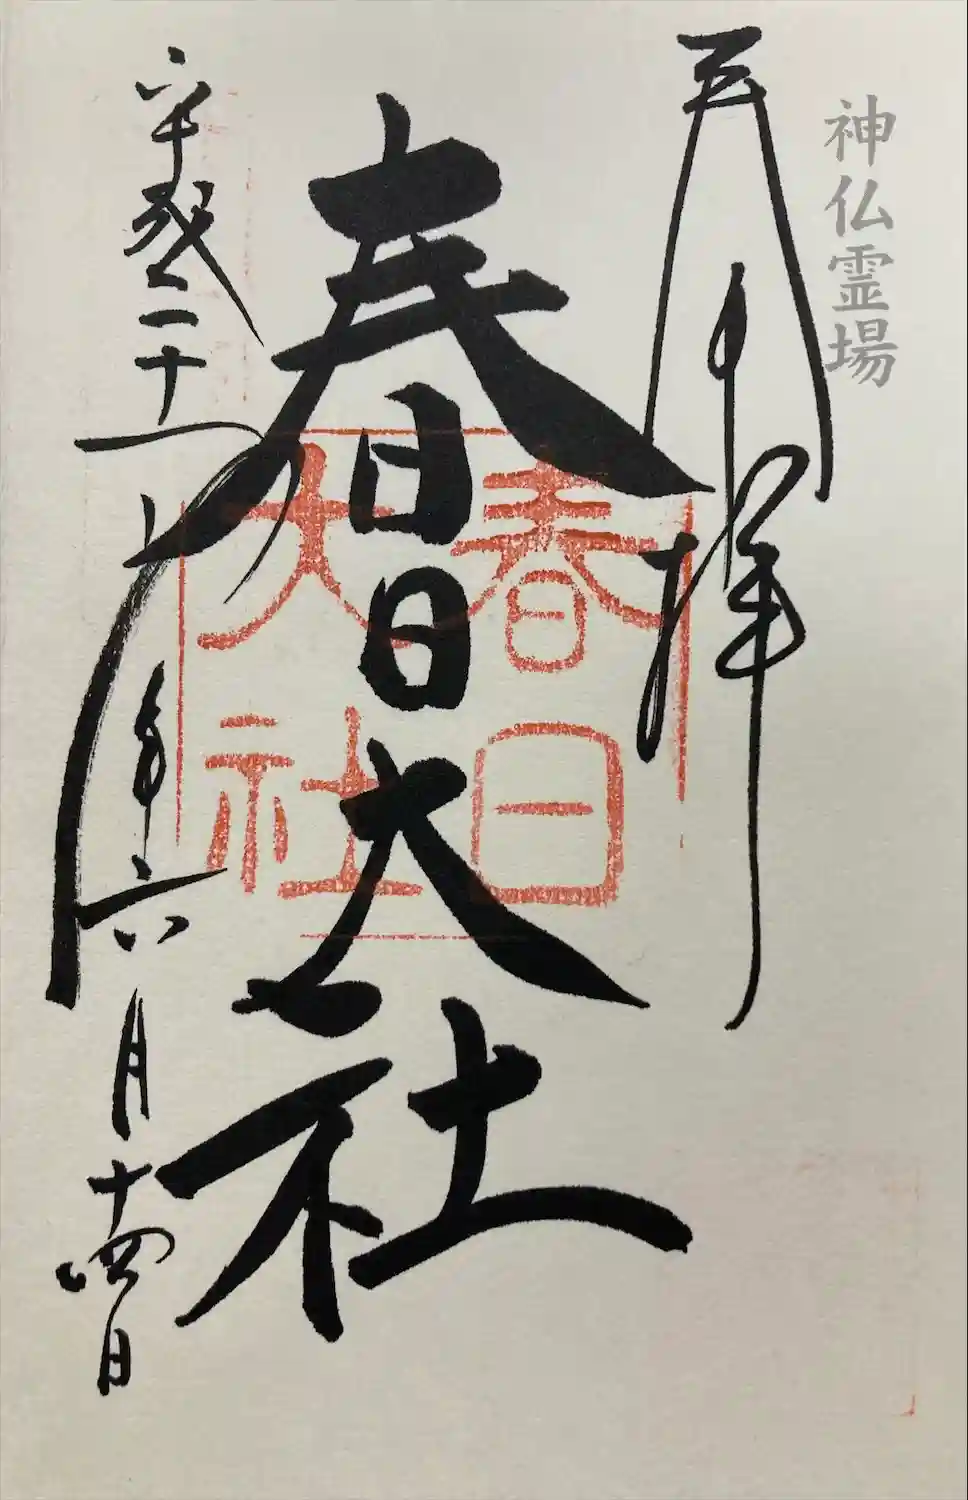 神仏霊場
奉拝
春日大社
春日
大社
平成二十年六月十四日